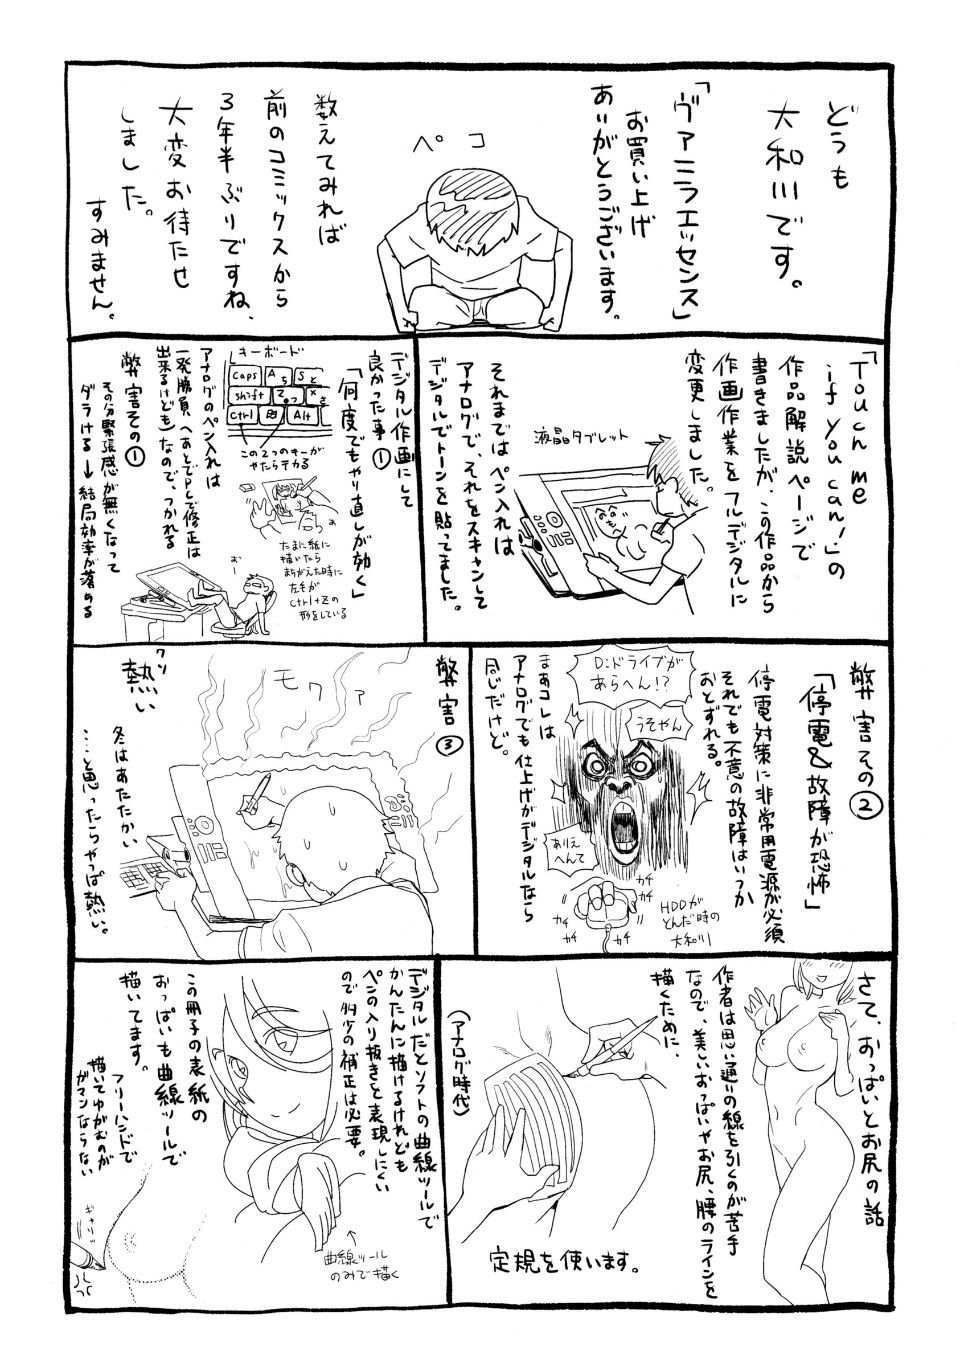 どうも
大和川です。
「ヴァニラエッセンス」
お買い上げ
ありがとうございます。
ペコ
数えてみれば
前のコミックスから
3年半ぶりですね、
大変お待たせ
しました。
すみません。
「Touch me
if you can!」の
作品解説ページで
書きましたが、この作品から
作画作業をフルデジタルに
変更しました。
液晶タブレット
それまではペン入れは
アナログで、それをスキャンして
デジタルでトーンを貼ってました。
デジタル作画にして
良かった事①
「何度でもやり直しが効く」
キーボード
Caps
A
ち
S
と
shift
Z
っ
X
さ
Ctrl
Alt
この2つのキーが
やたらテカる
たまに紙に
描いたら
まちがえた時に
左手が
Ctrl+Zの
形をしている
アナログのペン入れは
一発勝負(あとでPCで修正は
出来るけども)なので、つかれる
弊害その①
その分緊張感が無くなって
ダラける→結局効率が落ちる
おー
弊害その②
「停電&故障が恐怖」
停電対策に非常用電源が必須
それでも不意の故障はいつか
おとずれる。
D:ドライブが
あらへん!?
うそやん
ありえ
へんて
カチ
カチ
カチ
カチ
カチ
HDDが
とんだ時の
大和川
まあコレは
アナログでも仕上げがデジタルなら
同じだけど。
弊害③
モワァ
熱い
冬はあたたかい
…と思ったらやっぱ熱い。
さて、おっぱいとお尻の話
作者は思い通りの線を引くのが苦手
なので、美しいおっぱいやお尻、腰のラインを
描くために、
(アナログ時代)
定規を使います。
デジタルだとソフトの曲線ツールで
かんたんに描けるけれども
ペンの入り抜きを表現しにくい
ので多少の補正は必要。
曲線ツール
のみで描く
この冊子の表紙の
おっぱいも曲線ツールで
描いてます。
フリーハンドで
描いてゆがむのが
ガマンならない